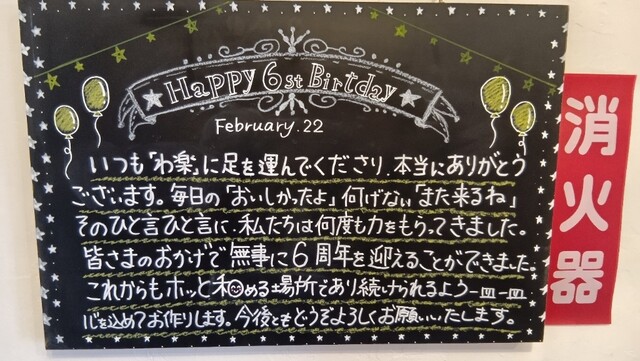 Happy 6st Birtday
February.22
いつも「わ楽」に足を運んでくださり 本当にありがとう
ございます。毎日の「おいしかったよ」何げない「また来るね」
そのひと言ひと言に、私たちは何度も力をもらってきました。
皆さまのおかげで無事に6周年を迎えることができました。
これからもホッと和める場所であり続けられるよう一皿一皿
心を込めてお作りします。今後ともどうぞよろしくお願いいたします。
消火器